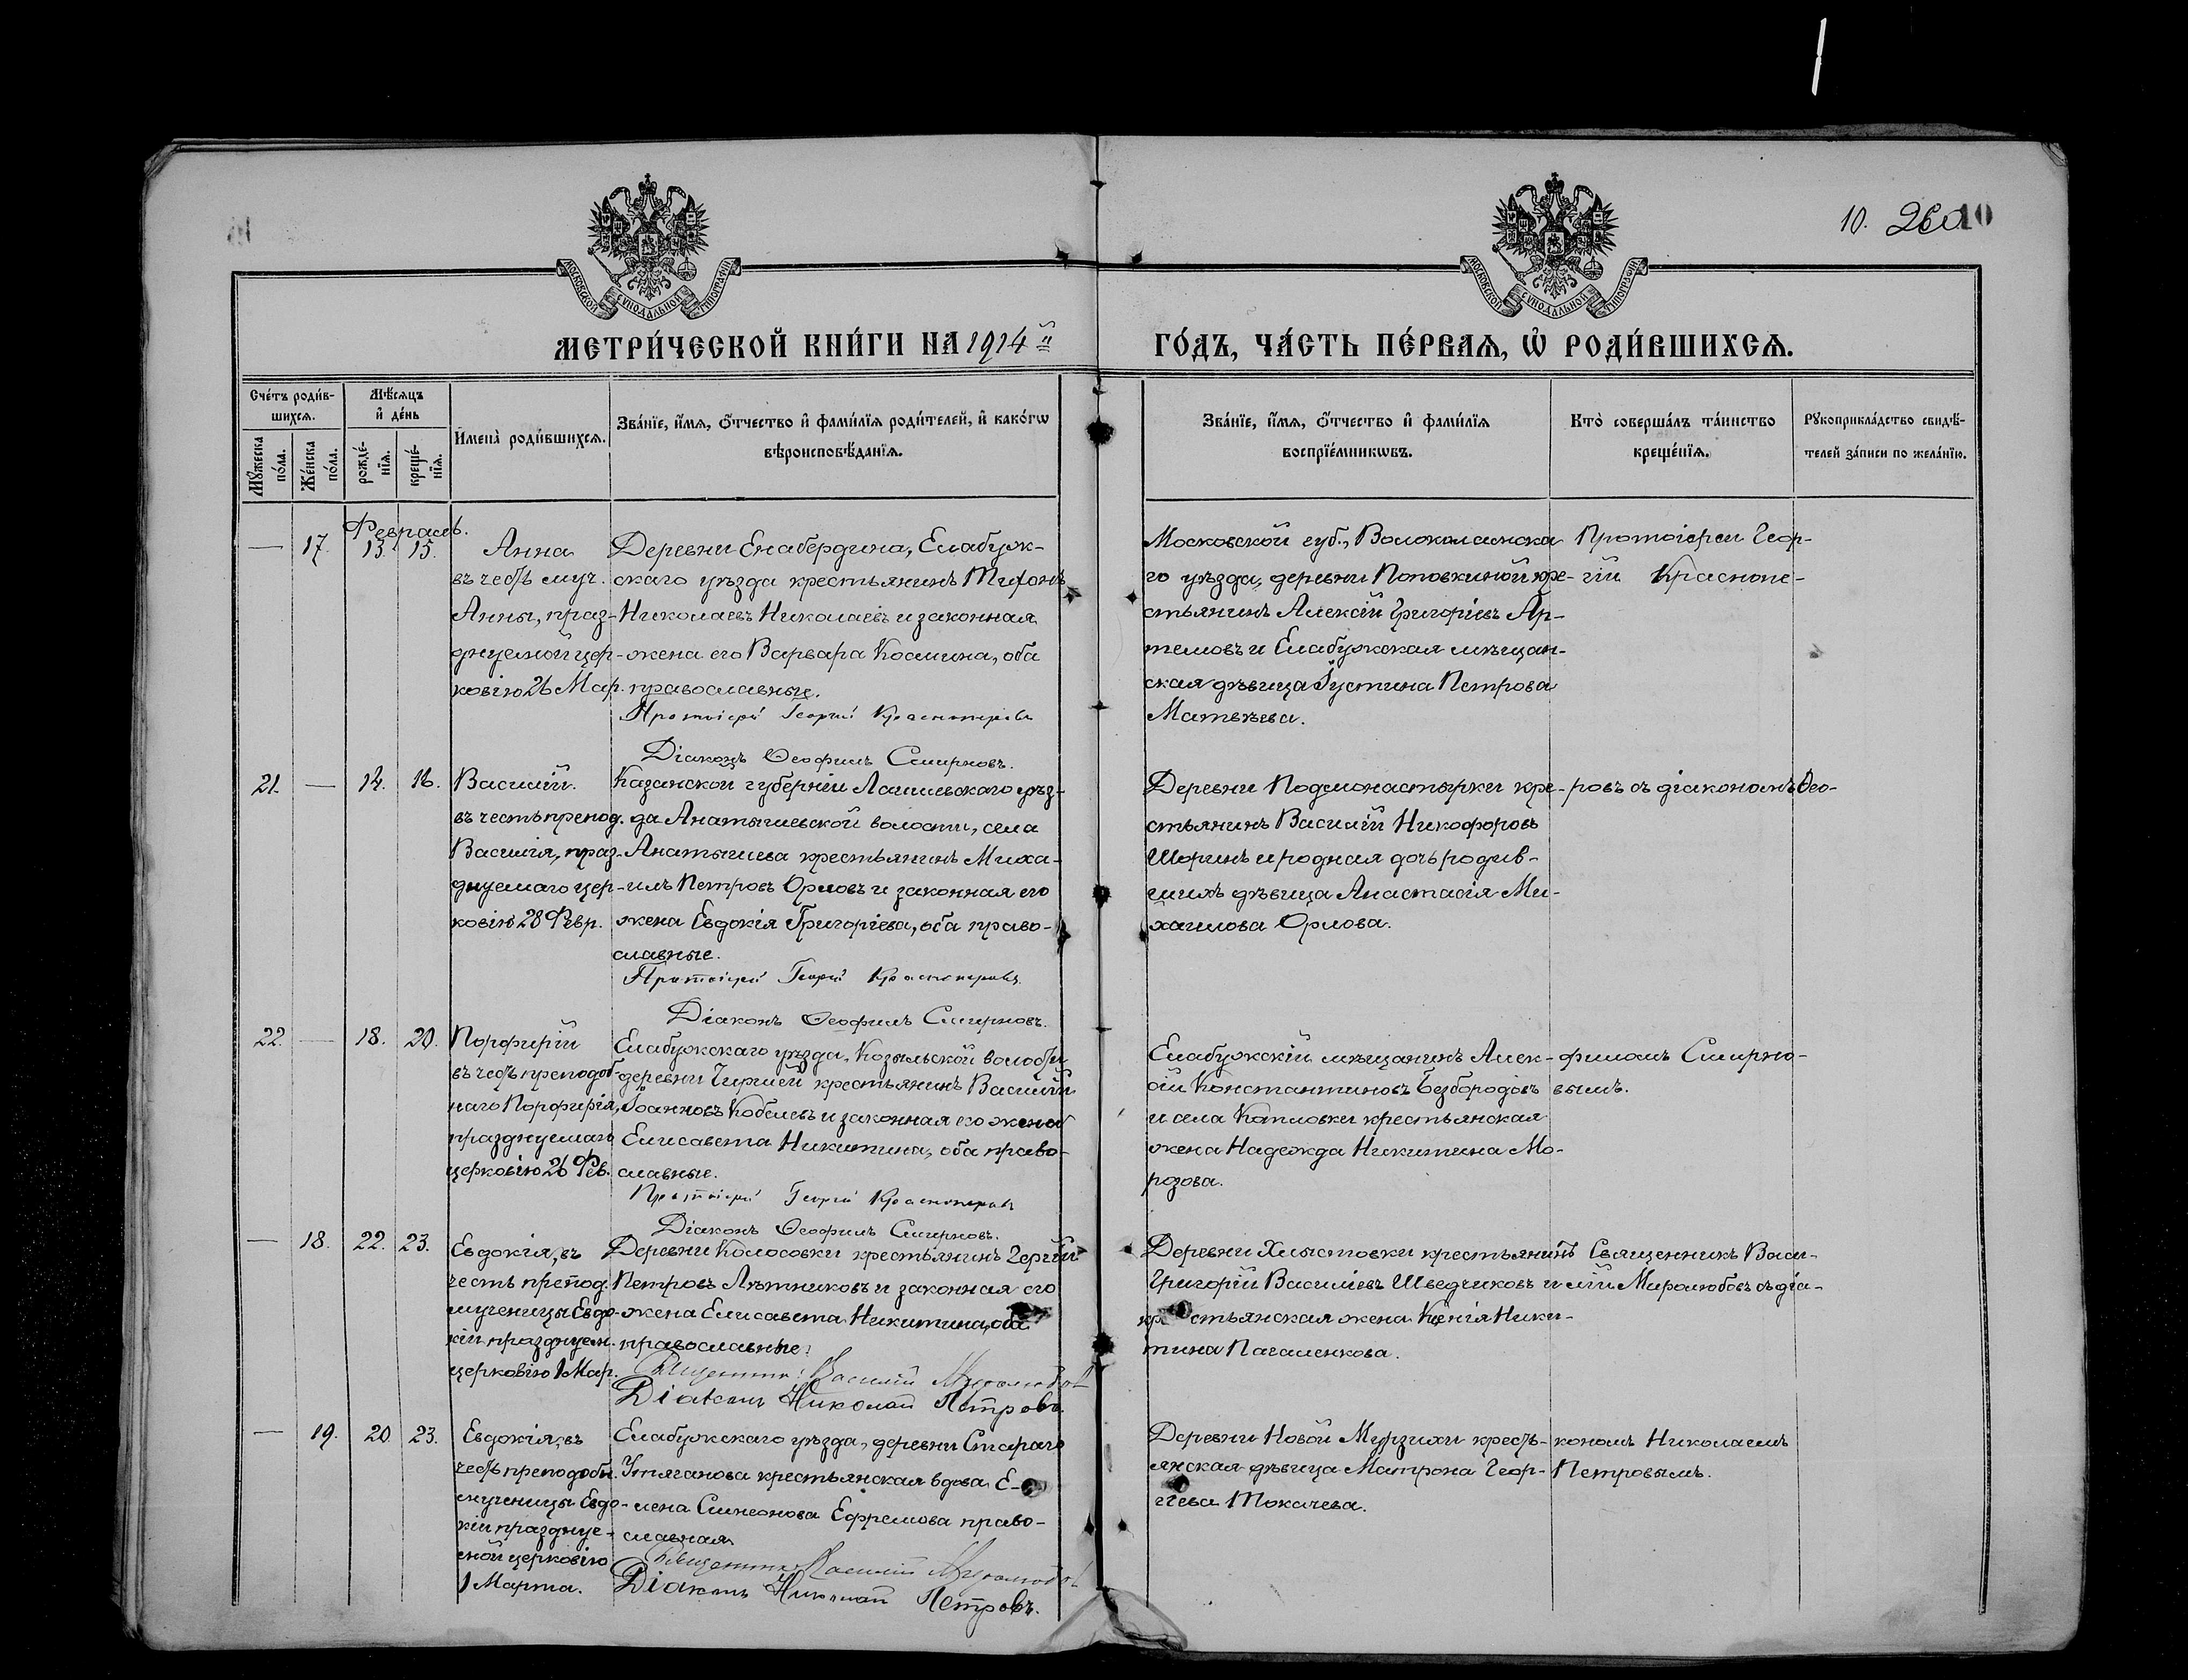 10. 260 10
МОСКОВСКОЙ СѴНОДАЛЬНОЙ ТИПОГРАФІИ
МОСКОВСКОЙ СѴНОДАЛЬНОЙ ТИПОГРАФІИ
МЕТРИ́ЧЕСКОЙ КНИ́ГИ НА 1914й ГО́ДЪ, ЧА́СТЬ ПЕ́РВАѦ, Ѡ РОДИ́ВШИХСѦ.
Сче́тъ роди́в-
шихсѧ.
Мꙋ́жеска по́ла.
Же́нска по́ла.
Мѣ́сѧцъ
и҆ де́нь
рожде́-
нїѧ.
креще́-
нїѧ.
И҆мена̀ роди́вшихсѧ.
Зва́нїе, и҆́мѧ, ѻ҆́тчество и҆ фами́лїѧ роди́телей, и҆ како́гѡ
вѣроисповѣ́данїѧ.
Зва́нїе, и҆́мѧ, ѻ҆́тчество и҆ фами́лїѧ
воспрїе́мникѡвъ.
Кто̀ соверша́лъ та́инство
креще́нїѧ.
Рꙋкоприкла́дство свидѣ́-
телей за́писи по жела́нїю.
Февраль.
— 17. 13. 15.
Анна
въ честь муч.
Анны, праз-
днуемой цер-
ковію 26 Мар.
Деревни Енабердина, Елабуж-
скаго уѣзда крестьянинъ Тихонъ
Николаевъ Николаевъ и законная
жена его Варвара Косьмина, оба
православные.
Протоіерей Георгій Красноперовъ
Діаконъ Ѳеофилъ Смирновъ.
Московской губ., Волоколамска-
го уѣзда, деревни Поповкиной кре-
стьянинъ Алексій Григоріевъ Ар-
темовъ и Елабужская мѣщан-
ская дѣвица Іустина Петрова
Матвѣева.
Протоіерей Геор-
гій Краснопе-
21. — 14. 16.
Василій.
въ честь препод.
Василія, праз-
днуемаго цер-
ковію 28 Февр.
Казанской губерніи Лаишевскаго уѣз-
да Анатышевской волости, села
Анатышева крестьянинъ Миха-
илъ Петровъ Орловъ и законная его
жена Евдокія Григоріева, оба право-
славные.
Протоіерей Георгій Красноперовъ
Діаконъ Ѳеофилъ Смирновъ.
Деревни Подмонастырки кре-
стьянинъ Василій Никофоровъ
Шоринъ и родная дочь родив-
шихъ дѣвица Анастасія Ми-
хаилова Орлова.
ровъ съ діакономъ Ѳео-
22. — 18. 20.
Порфирій
въ честь преподоб-
наго Порфирія,
празднуемаго
церковію 26 Фев.
Елабужскаго уѣзда, Козыльской волости
деревни Чиршей крестьянинъ Василій
Іоанновъ Кобелевъ и законная его жена
Елисавета Никитина, оба право-
славные.
Протоіерей Георгій Красноперовъ
Діаконъ Ѳеофилъ Смирновъ.
Елабужскій мѣщанинъ Алек-
сій Константиновъ Безбородовъ
и села Капловки крестьянская
жена Надежда Никитина Мо-
розова.
филомъ Смирно-
вымъ.
— 18. 22. 23.
Евдокія, въ
честь препод.
мученицы Евдо-
кіи празднуем.
церковію 1 Мар.
Деревни Колосовки крестьянинъ Сергій
Петровъ Лѣтниковъ и законная его
жена Елисавета Никитина, оба
православные.
Священникъ Василій Миролюбовъ
Діаконъ Николай Петровъ.
Деревни Хлыстовки крестьянинъ
Григорій Василіевъ Шведчиковъ и
крестьянская жена Ксенія Ники-
тина Пагаленкова.
Священникъ Васи-
лій Миролюбовъ съ діа-
— 19. 20. 23.
Евдокія, въ
честь преподобн.
мученицы Евдо-
кіи праздnуе-
мой церковію
1 Марта.
Елабужскаго уѣзда, деревни Стараго
Утяганова крестьянская вдова Е-
лена Симеонова Ефремова право-
славная.
Священникъ Василій Миролюбовъ
Діаконъ Николай Петровъ.
Деревни Новой Мурзихи кресть-
янская дѣвица Матрона Геор-
гіева Токачева.
кономъ Николаемъ
Петровымъ.